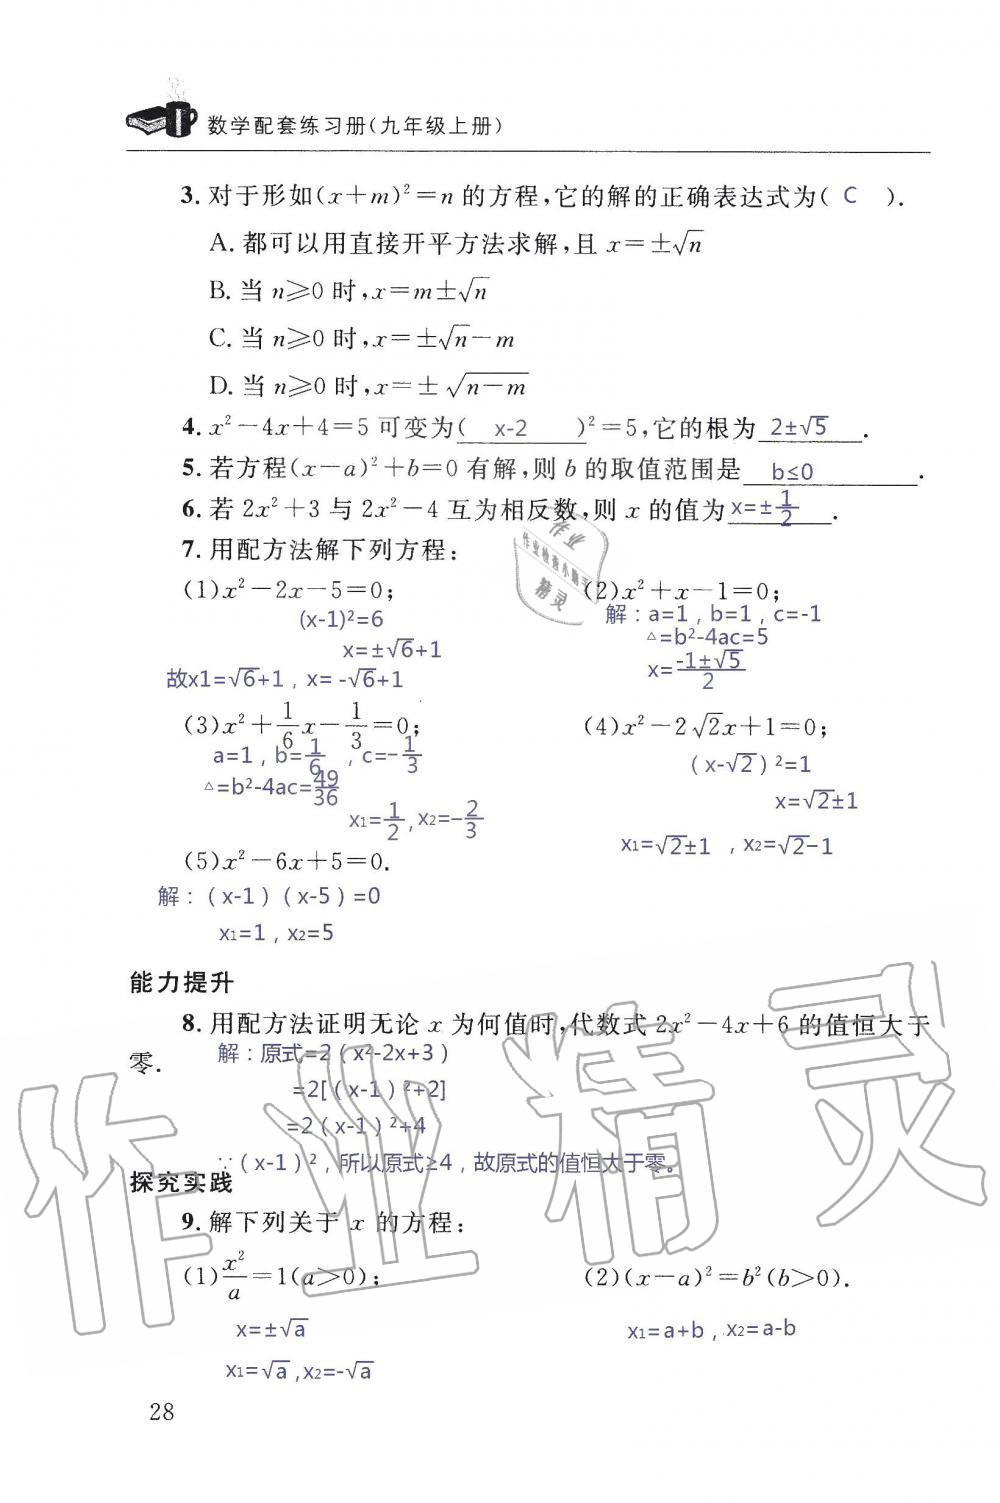 数学配套练习册(九年级上册)
3. 对于形如(x+m)²=n 的方程,它的解的正确表达式为( C ).
A. 都可以用直接开平方法求解,且 x=±√n
B. 当 n≥0 时,x=m±√n
C. 当 n≥0 时,x=±√n-m
D. 当 n≥0 时,x=±√(n-m)
4. x²-4x+4=5 可变为( x-2 )²=5,它的根为 2±√5 .
5. 若方程(x-a)²+b=0 有解,则 b 的取值范围是 b≤0 .
6. 若 2x²+3 与 2x²-4 互为相反数,则 x 的值为 x=±1/2 .
7. 用配方法解下列方程:
(1)x²-2x-5=0;
(x-1)²=6
x=±√6+1
故x1=√6+1, x= -√6+1
(2)x²+x-1=0;
解:a=1, b=1, c=-1
△=b²-4ac=5
x=(-1±√5)/2
(3)x²+1/6x-1/3=0;
a=1, b=1/6, c=-1/3
△=b²-4ac=49/36
x1=1/2, x2=-2/3
(4)x²-2√2x+1=0;
(x-√2)²=1
x=√2±1
x1=√2±1 , x2=√2-1
(5)x²-6x+5=0.
解:(x-1)(x-5)=0
x1=1, x2=5
能力提升
8. 用配方法证明无论 x 为何值时,代数式 2x²-4x+6 的值恒大于
零.
解:原式=2(x²-2x+3)
=2[(x-1)²+2]
=2(x-1)²+4
∵(x-1)²,所以原式≥4,故原式的值恒大于零。
探究实践
9. 解下列关于 x 的方程:
(1)x²/a=1(a>0);
x=±√a
x1=√a,x2=-√a
(2)(x-a)²=b²(b>0).
x1=a+b, x2=a-b
28
作业精灵
作业
作业检查小助手
精灵